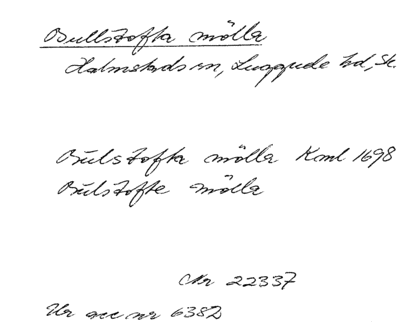 Bullstofta mölla
Halmstads sn, Luggude hd, Sk.
Bülstofta mölla Kml 1698
Bülstofte mölla
Nr 22337
Ur acc nr 6382